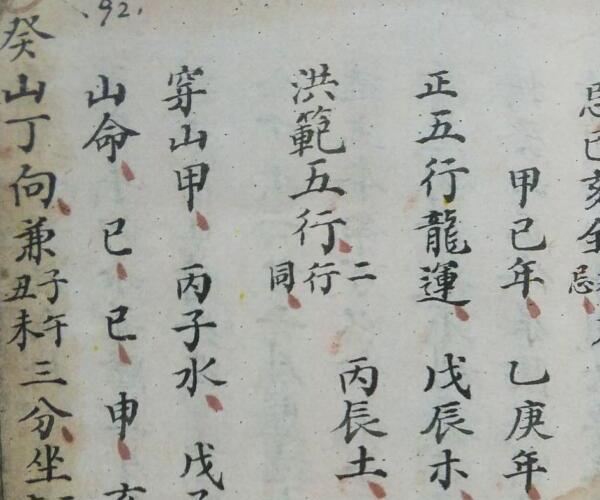 92.
忌巳亥
忌
甲己年、乙庚年、
正五行龍運 戊辰木
洪範五行、二行同、丙辰土、
穿山甲、丙子水、戊
山命、巳、巳、申、
癸山丁向、兼子午丑未三分、坐